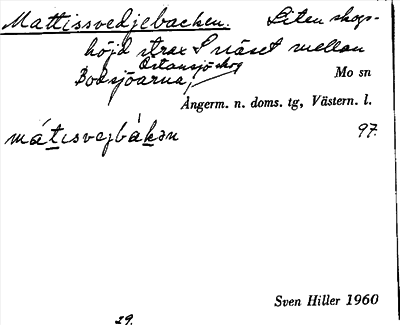 Mattissvedjebacken. Liten skogs-
höjd strax S näset mellan
Bodsjöarna, Östansjö skog
Mo sn
Ångerm. n. doms. tg, Västern. l.
mátɩsvejbàkən 97.
Sven Hiller 1960
29.